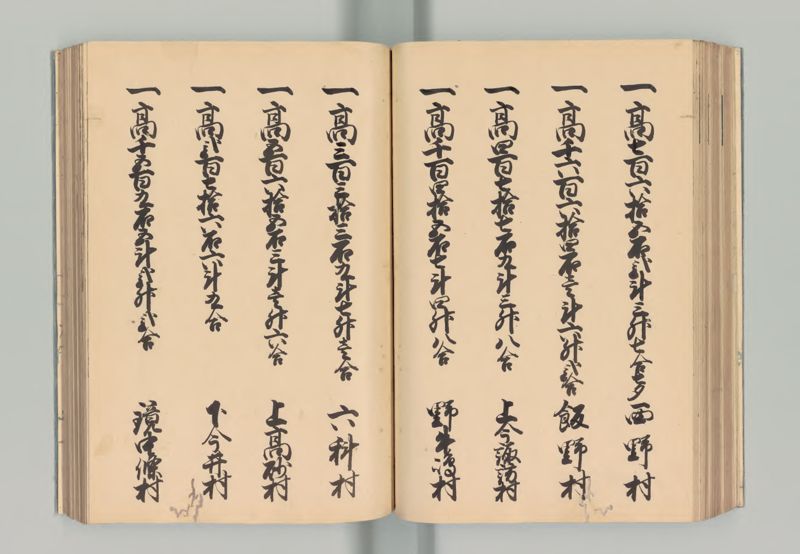 一高七百六拾五石弐斗三升七合七夕 西野村
一高千六百六拾四石壱斗六升弐合 飯野村
一高四百七拾七石九斗三升八合 上今諏訪村
一高千百四拾五石七斗四升八合 野牛嶋村
一高三百三拾三石九斗七升壱合 六科村
一高五百六拾五石三斗壱升六合 上高砂村
一高弐百七拾六石六斗五合 下今井村
一高千五百九石五斗弐升弐合 鏡中條村